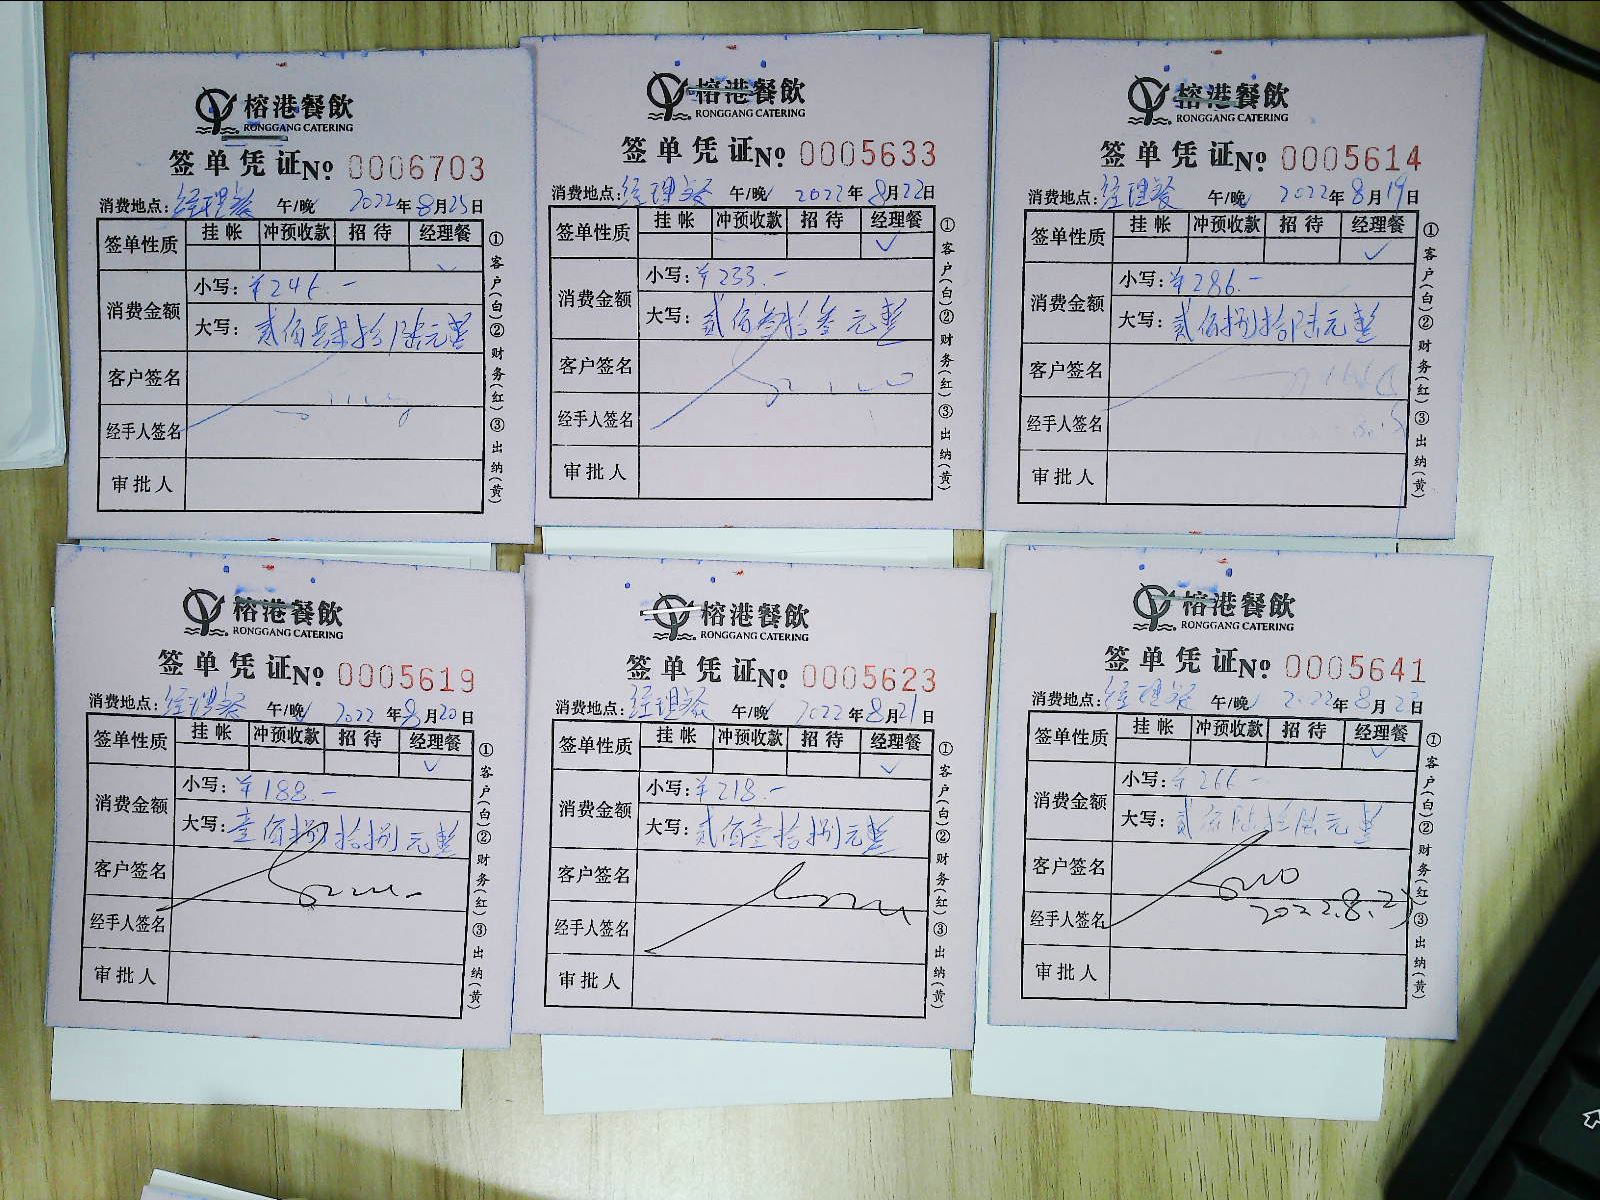 榕港餐飲
RONGGANG CATERING
签单凭证№ 0006703
消费地点：经理餐 午/晚 2022年8月25日
签单性质 挂帐 冲预收款 招待 经理餐
✓
消费金额 小写：¥246.-
大写：贰佰肆拾陆元整
客户签名
经手人签名
审批人
①客户(白)②财务(红)③出纳(黄)
榕港餐飲
RONGGANG CATERING
签单凭证№ 0005633
消费地点：经理餐 午/晚 2022年8月22日
签单性质 挂帐 冲预收款 招待 经理餐
✓
消费金额 小写：¥233.-
大写：贰佰叁拾叁元整
客户签名
经手人签名
审批人
①客户(白)②财务(红)③出纳(黄)
榕港餐飲
RONGGANG CATERING
签单凭证№ 0005614
消费地点：经理餐 午/晚 2022年8月19日
签单性质 挂帐 冲预收款 招待 经理餐
✓
消费金额 小写：¥286.-
大写：贰佰捌拾陆元整
客户签名
经手人签名
审批人
①客户(白)②财务(红)③出纳(黄)
榕港餐飲
RONGGANG CATERING
签单凭证№ 0005619
消费地点：经理餐 午/晚 2022年8月20日
签单性质 挂帐 冲预收款 招待 经理餐
✓
消费金额 小写：¥188.-
大写：壹佰捌拾捌元整
客户签名
经手人签名
审批人
①客户(白)②财务(红)③出纳(黄)
榕港餐飲
RONGGANG CATERING
签单凭证№ 0005623
消费地点：经理餐 午/晚 2022年8月21日
签单性质 挂帐 冲预收款 招待 经理餐
✓
消费金额 小写：¥218.-
大写：贰佰壹拾捌元整
客户签名
经手人签名
审批人
①客户(白)②财务(红)③出纳(黄)
榕港餐飲
RONGGANG CATERING
签单凭证№ 0005641
消费地点：经理餐 午/晚 2022年8月23日
签单性质 挂帐 冲预收款 招待 经理餐
✓
消费金额 小写：¥266-
大写：贰佰陆拾陆元整
客户签名
2022.8.23
经手人签名
审批人
①客户(白)②财务(红)③出纳(黄)